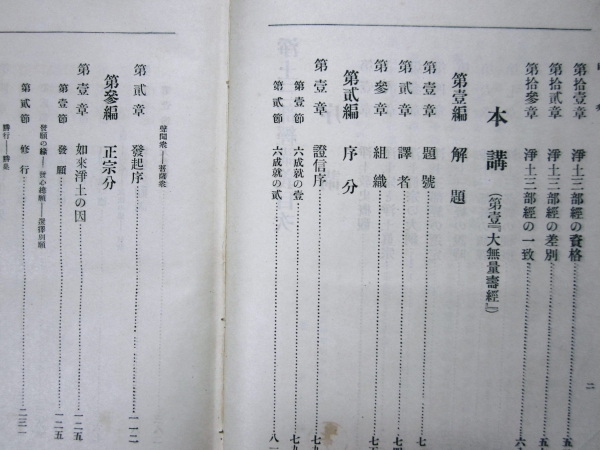 第拾壹章 淨土三部經の資格 五
第拾貳章 淨土三部經の差別 五
第拾參章 淨土三部經の一致 六
本講（第壹『大無量壽經』）
第壹編 解題
第壹章 題號 七
第貳章 譯者 七
第參章 組織 七
第貳編 序分
第壹章 證信序 七
第壹節 六成就の壹 七
第貳節 六成就の貳 八
聲聞衆——菩薩衆
第貳章 發起序 一一二
第參編 正宗分
第壹章 如來淨土の因 一二五
第壹節 發願 一二五
發願の緣——發心總願——選擇別願
第貳節 修行 二三一
勝行——勝果
二